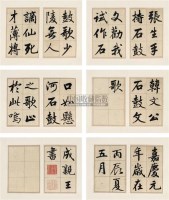 張生手
持石鼓
文勸我
試作石
鼓歌少
陵無人
謫仙死
才薄將
韓文公
石鼓
歌
口如懸
河石鼓
之歌止
於此嗚
嘉慶元
年歲在
丙辰夏
五月
成親王
書